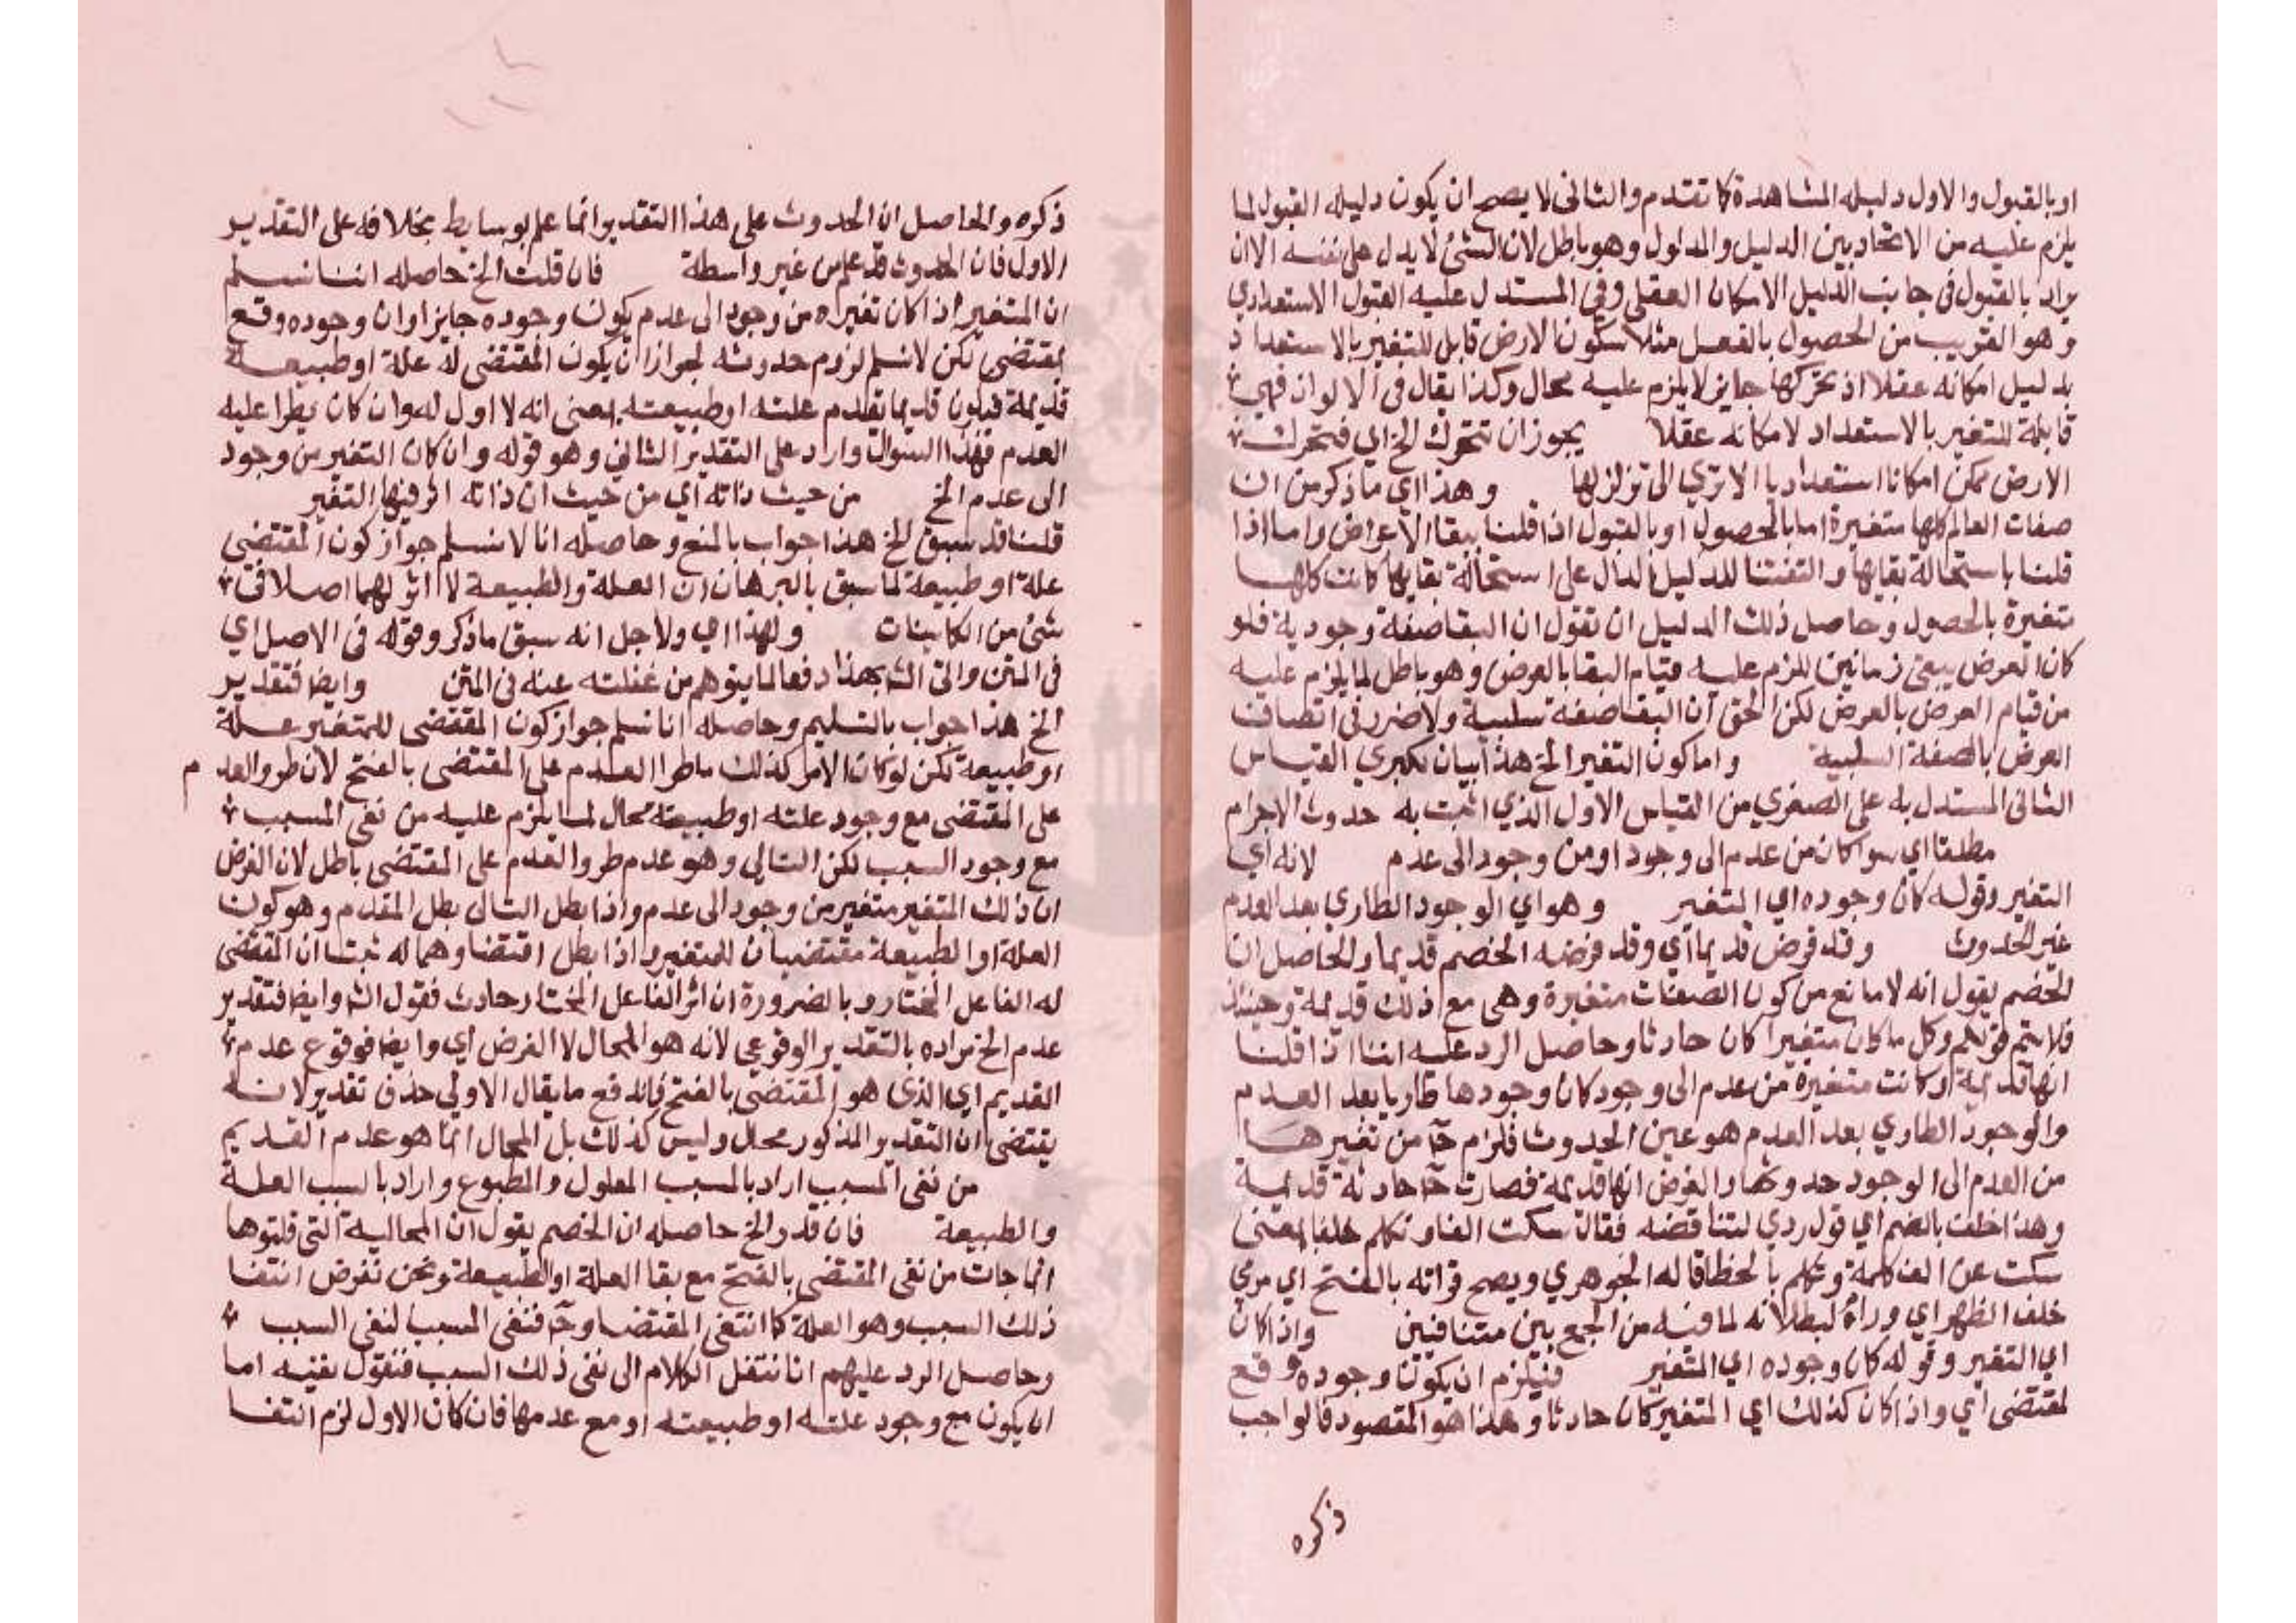 او بالقبول والاول دليله المشاهدة كما تقدم والثاني لا يصح ان يكون دليله القبول لما
يلزم عليه من الاتحاد بين الدليل والمدلول وهو باطل لان الشئ لا يدل على نفسه الا ان
يراد بالقبول في جانب الدليل الامكان العقلي وفي المستدل عليه القبول الاستعدادي
وهو القريب من الحصول بالفعل مثلا سكون الارض قابل للتغير بالاستعداد
بدليل امكانه عقلا اذ تحركها جايز لا يلزم عليه محال وكذا يقال في الالوان فهي
قابلة للتغير بالاستعداد لامكانه عقلا يجوز ان تتحرك الخ اي فتحرك
الارض ممكن امكانا استعداديا الا تري الى تزلزلها وهذا اي ما ذكر من ان
صفات العالم كلها متغيرة اما بالحصول او بالقبول اذا قلنا ببقا الاعراض واما اذا
قلنا باستحالة بقايها والتفتنا للدليل الدال على استحالة بقايها كانت كلها
متغيرة بالحصول وحاصل ذلك الدليل ان تقول ان البقا صفة وجودية فلو
كان العرض يبقى زمانين للزم عليه قيام البقا بالعرض وهو باطل لما يلزم عليه
من قيام العرض بالعرض لكن الحق ان البقا صفة سلبية ولا ضرر في اتصاف
العرض بالصفة السلبية واما كون التغير الخ هذا بيان لكبري القياس
الثاني المستدل به على الصغري من القياس الاول الذي اثبت به حدوث الاجرام
مطلقا اي سوا كان من عدم الى وجود او من وجود الى عدم لانه اي
التغير وقوله كان وجوده اي المتغير وهو اي الوجود الطاري بعد العدم
عين الحدوث وقد فرض قديما اي وقد فرضه الخصم قديما والحاصل ان
الخصم يقول انه لا مانع من كون الصفات متغيرة وهي مع ذلك قديمة وحينئذ
فلا يتم قولكم وكل ما كان متغيرا كان حادثا وحاصل الرد عليه اننا اذا قلنا
انها قديمة وكانت متغيرة من عدم الى وجود كان وجودها طاريا بعد العدم
والوجود الطاري بعد العدم هو عين الحدوث فلزم ح من تغيرها
من العدم الى الوجود حدوثها والفرض انها قديمة فصارت ح حادثة قديمة
وهذا خلف بالضم اي قول ردي لتناقضه فقال سكت الفا وتكلم خلفا بمعنى
سكت عن الف كلمة وتكلم بالخطا قاله الجوهري ويصح قراته بالفتح اي مرمي
خلف الظهر اي وراه لبطلانه لما فيه من الجمع بين متنافيين واذا كان
اي التغير وقوله كان وجوده اي المتغير فيلزم ان يكون وجوده وقع
لمقتضى اي واذا كان كذلك اي المتغير كان حادثا وهذا هو المقصود فالواجب
ذكره
ذكره والحاصل ان الحدوث على هذا التقدير انما علم بوسايط بخلافه على التقدير
الاول فان الحدوث قد علم من غير واسطة فان قلت الخ حاصله اننا نسلم
ان المتغير اذا كان تغيره من وجود الى عدم يكون وجوده جايزا وان وجوده وقع
لمقتضى لكن لا نسلم لزوم حدوثه لجواز ان يكون المقتضى له علة او طبيعة
قديمة فيكون قديما بقدم علته او طبيعته بمعنى انه لا اول له وان كان يطرا عليه
العدم فهذا السوال وارد على التقدير الثاني وهو قوله وان كان التغير من وجود
الى عدم الخ من حيث ذاته اي من حيث ان ذاته اثر فيها التغير
قلنا قد سبق الخ هذا جواب بالمنع وحاصله انا لا نسلم جواز كون المقتضى
علة او طبيعة لما سبق بالبرهان ان العلة والطبيعة لا اثر لهما اصلا في
شئ من الكاينات ولهذا اي ولاجل انه سبق ما ذكر وقوله في الاصل اي
في المتن واتى الش بهذا دفعا لما يتوهم من غفلته عنه في المتن وايضا فتقدير
الخ هذا جواب بالتسليم وحاصله انا نسلم جواز كون المقتضى للمتغير علة
او طبيعة لكن لو كان الامر كذلك ما طرا العدم على المقتضى بالفتح لان طرو العدم
على المقتضى مع وجود علته او طبيعته محال لما يلزم عليه من نفي المسبب
مع وجود السبب لكن التالي وهو عدم طرو العدم على المقتضى باطل لان الفرض
ان ذلك المتغير متغير من وجود الى عدم واذا بطل التالي بطل المقدم وهو كون
العلة او الطبيعة مقتضيان للمتغير واذا بطل اقتضاوهما له ثبت ان المقتضى
له الفاعل المختار وبالضرورة ان اثر الفاعل المختار حادث فقول الش وايضا فتقدير
عدم الخ مراده بالتقدير الوقوعي لانه هو المحال لا الفرض اي وايضا فوقوع عدم
القديم اي الذي هو المقتضى بالفتح فاندفع ما يقال الاولى حذف تقدير لانه
يقتضى ان التقدير المذكور محال وليس كذلك بل المحال انما هو عدم القديم
من نفي المسبب اراد بالمسبب المعلول والمطبوع واراد بالسبب العلة
والطبيعة فان قدر الخ حاصله ان الخصم يقول ان المحالية التي قلتوها
انما جات من نفي المقتضى بالفتح مع بقا العلة او الطبيعة ونحن نفرض انتفا
ذلك السبب وهو العلة كما انتفى المقتضا وح فنفى المسبب لنفى السبب
وحاصل الرد عليهم انا ننقل الكلام الى نفى ذلك السبب فنقول نفيه اما
ان يكون مع وجود علته او طبيعته او مع عدمها فان كان الاول لزم انتفا